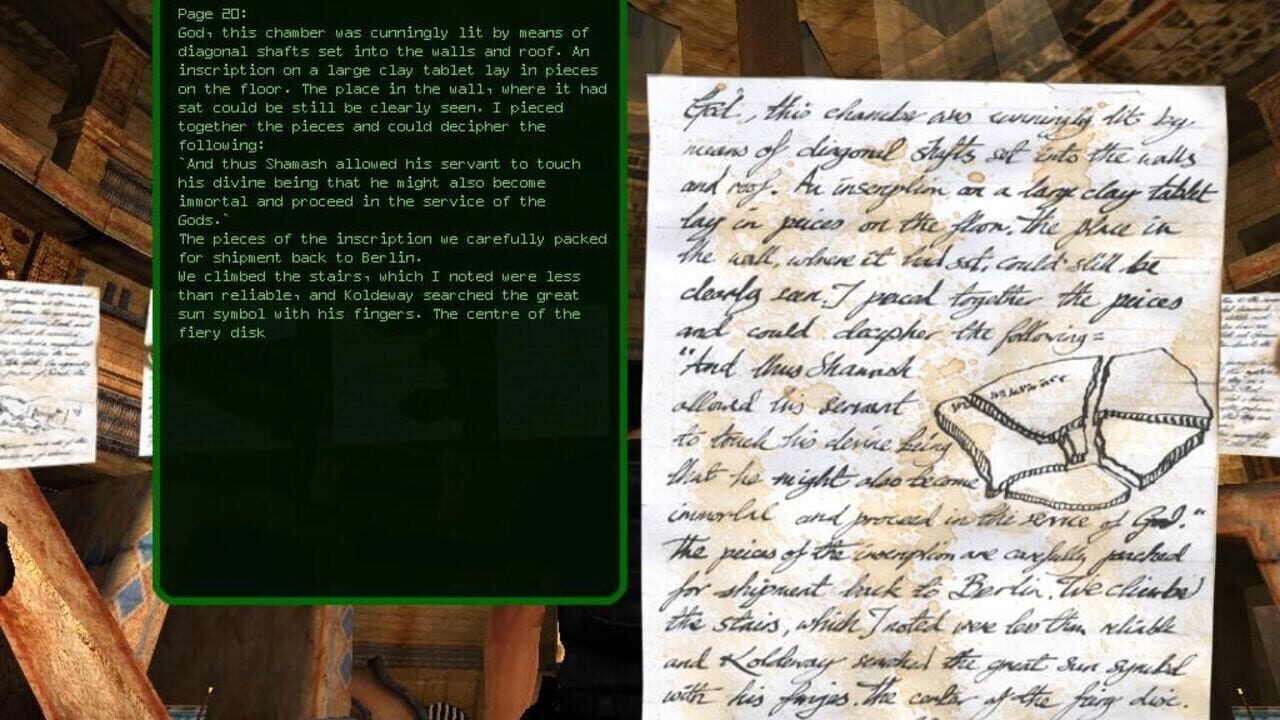 Page 20:
God, this chamber was cunningly lit by means of
diagonal shafts set into the walls and roof. An
inscription on a large clay tablet lay in pieces
on the floor. The place in the wall, where it had
sat could be still be clearly seen. I pieced
together the pieces and could decipher the
following:
`And thus Shamash allowed his servant to touch
his divine being that he might also become
immortal and proceed in the service of the
Gods.`
The pieces of the inscription we carefully packed
for shipment back to Berlin.
We climbed the stairs, which I noted were less
than reliable, and Koldeway searched the great
sun symbol with his fingers. The centre of the
fiery disk
God, this chamber was cunningly lit by
means of diagonal shafts set into the walls
and roof. An inscription on a large clay tablet
lay in peices on the floor. The place in
the wall, where it had set, could still be
clearly seen. I peiced together the peices
and could decipher the following:
"And thus Shamash
allowed his servant
to touch his devine being
that he might also become
immortal and proceed in the service of God."
The peices of the inscription are carefully packed
for shipment back to Berlin. We climbed
the stairs, which I noted were less then reliable
and Koldeway searched the great sun symbol
with his finges. The center of the fiery disc.